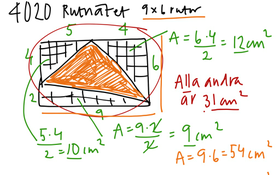 4020 Rutnätet 9x6 rutor
5 4
A = 6·4/2 = 12cm²
4
6
Alla andra
är 31cm²
2
9
5·4/2 = 10cm²
A = 9·2/2 = 9cm²
A = 9·6 = 54cm²